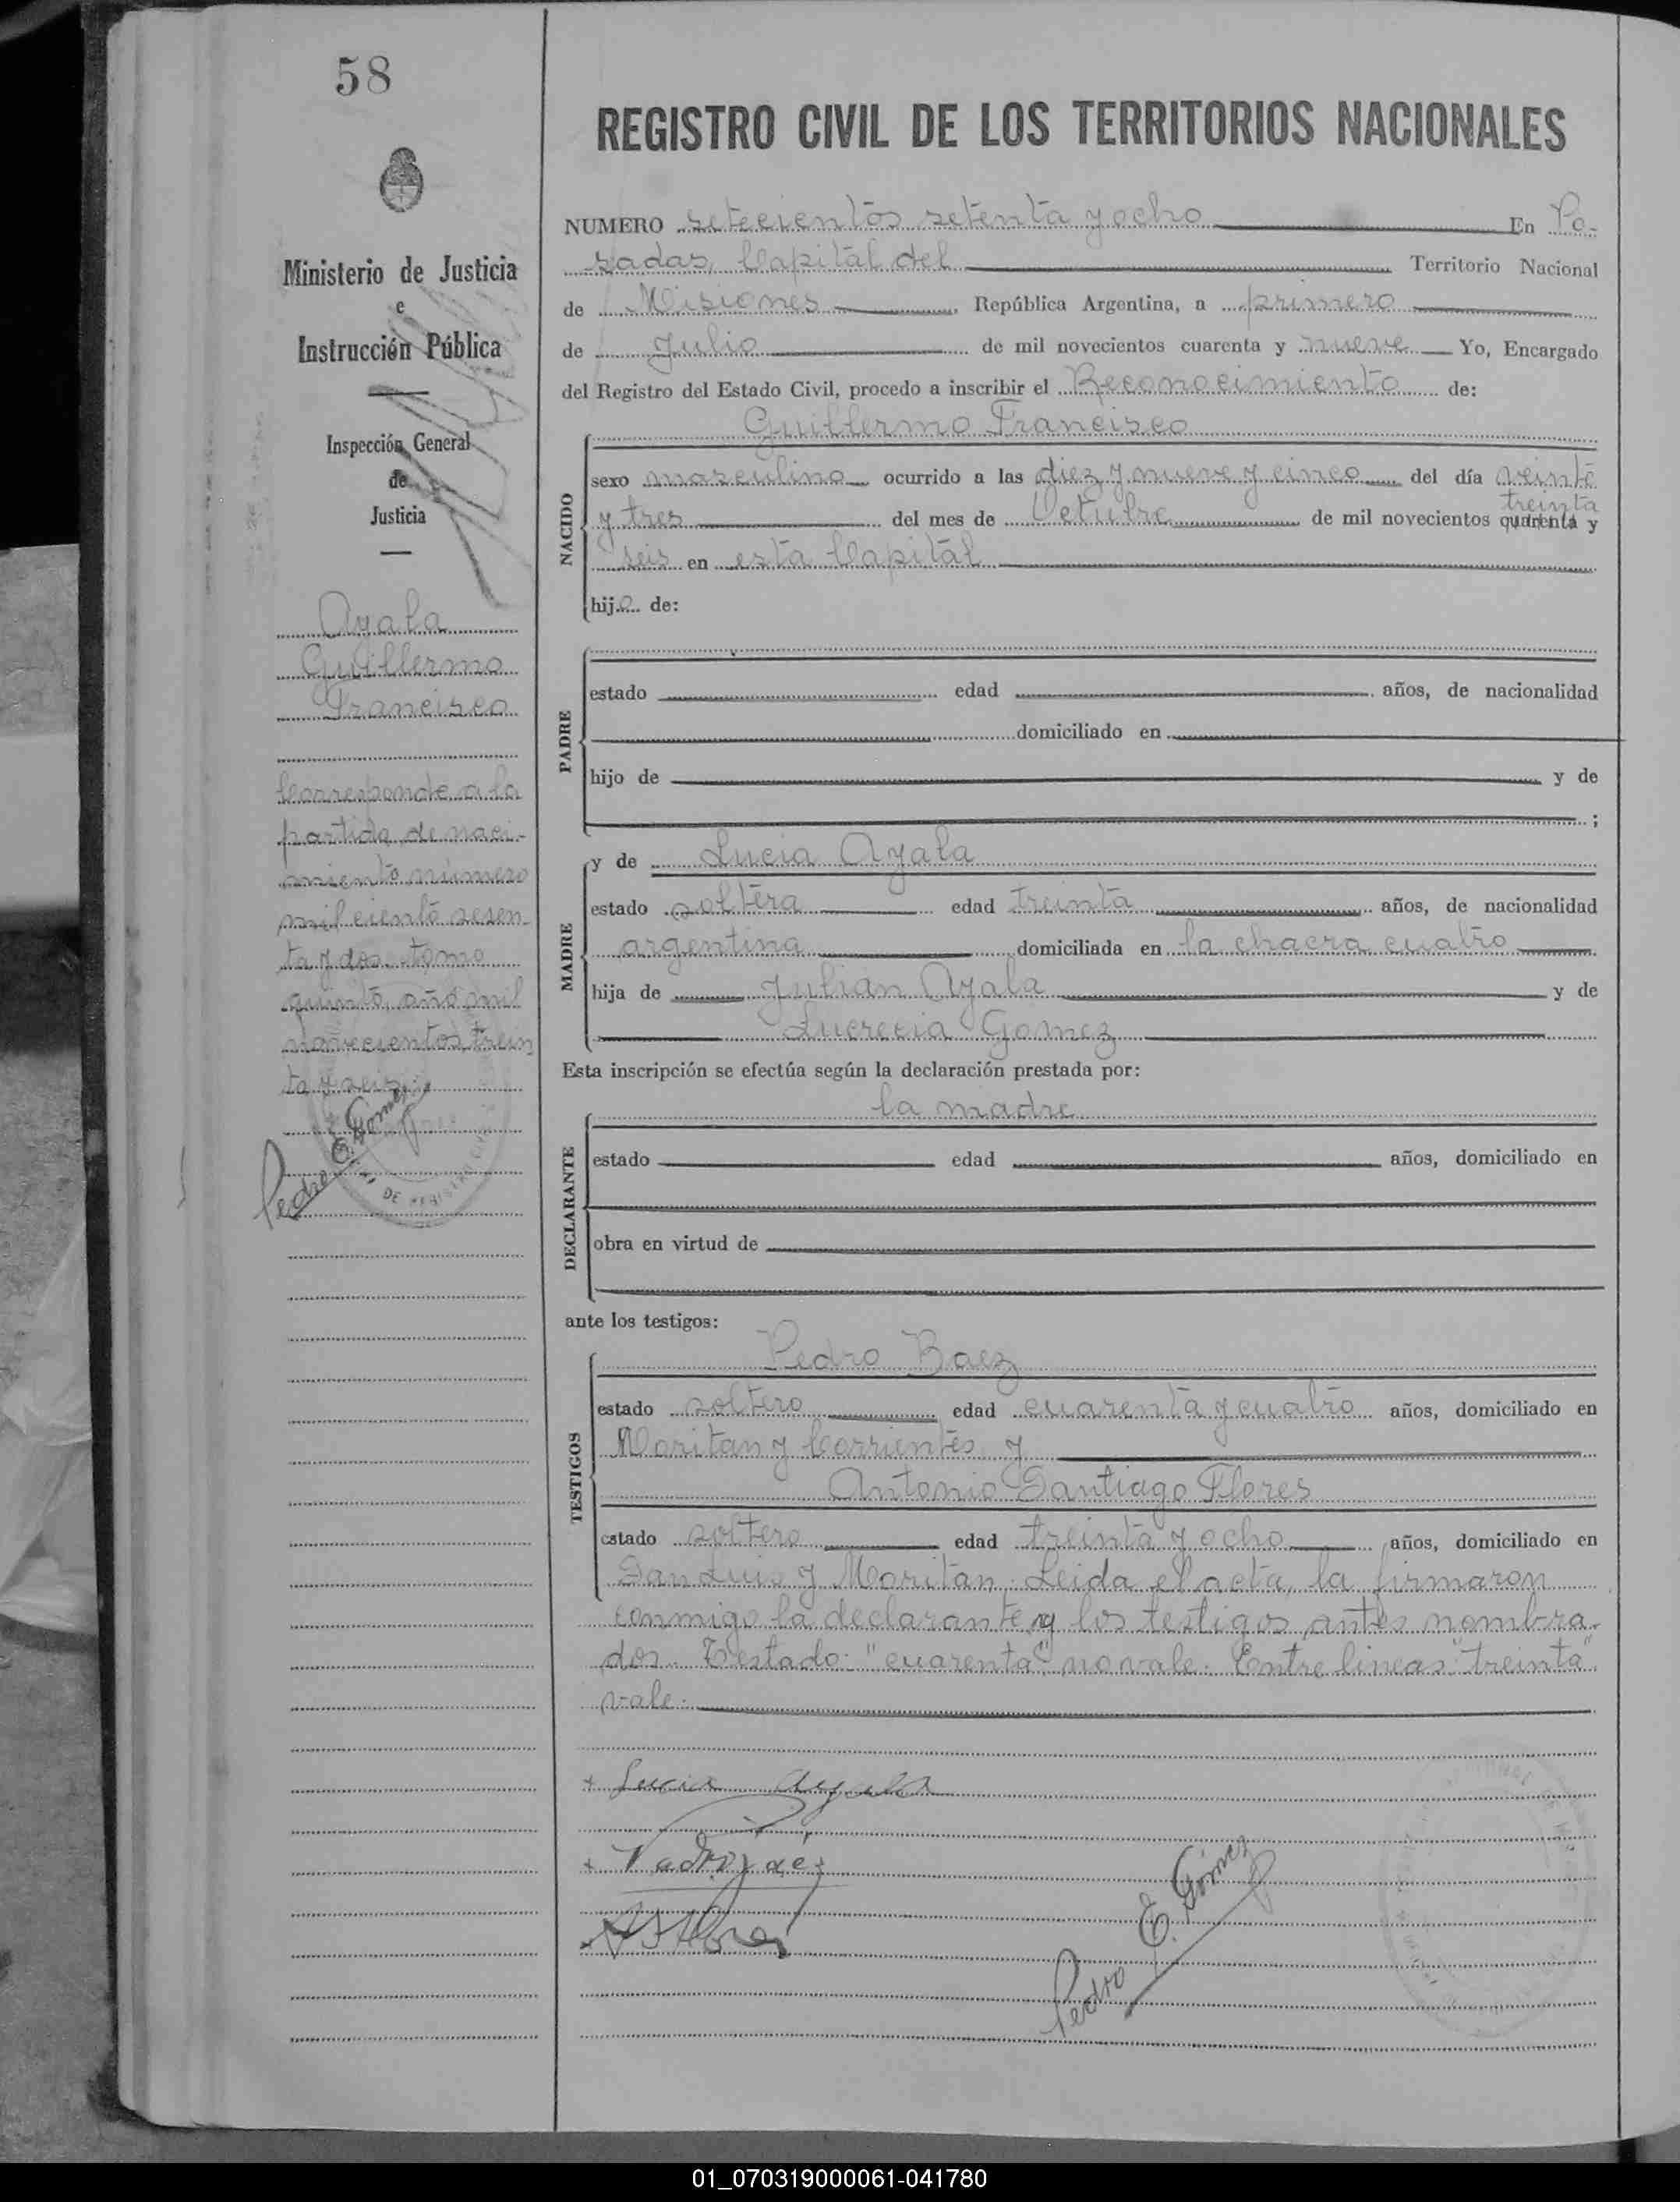 58
REGISTRO CIVIL DE LOS TERRITORIOS NACIONALES
NUMERO setecientos setenta y ocho En Po-
sadas, Capital del Territorio Nacional
de Misiones, República Argentina, a primero
de Julio de mil novecientos cuarenta y nueve Yo, Encargado
del Registro del Estado Civil, procedo a inscribir el Reconocimiento de:
Guillermo Francisco
NACIDO
sexo masculino ocurrido a las diez y nueve y cinco del día veinte
treinta
y tres del mes de Octubre de mil novecientos cuarenta y
seis en esta Capital
hijo de:
PADRE
estado edad años, de nacionalidad
domiciliado en
hijo de y de
;
MADRE
y de Lucia Ayala
estado soltera edad treinta años, de nacionalidad
argentina domiciliada en la chacra cuatro
hija de Julián Ayala y de
Lucrecia Gomez
Esta inscripción se efectúa según la declaración prestada por:
la madre
DECLARANTE
estado edad años, domiciliado en
obra en virtud de
ante los testigos:
TESTIGOS
Pedro Baez
estado soltero edad cuarenta y cuatro años, domiciliado en
Moritan y Corrientes y
Antonio Santiago Flores
estado soltero edad treinta y ocho años, domiciliado en
San Luis y Moritan. Leida el acta, la firmaron
conmigo la declarante y los testigos antes nombra-
dos. Testado: "cuarenta" no vale. Entre lineas "treinta"
vale.
+ Lucia Ayala
+ Pedro Baez
Pedro E. Gómez
Ministerio de Justicia
e
Instrucción Pública
Inspección General
de
Justicia
Ayala
Guillermo
Francisco
Corresponde a la
partida de naci-
miento número
mil ciento sesen-
ta y dos tomo
quinto, año mil
novecientos trein
ta y seis.
Pedro E. Gomez
DE
01_070319000061-041780